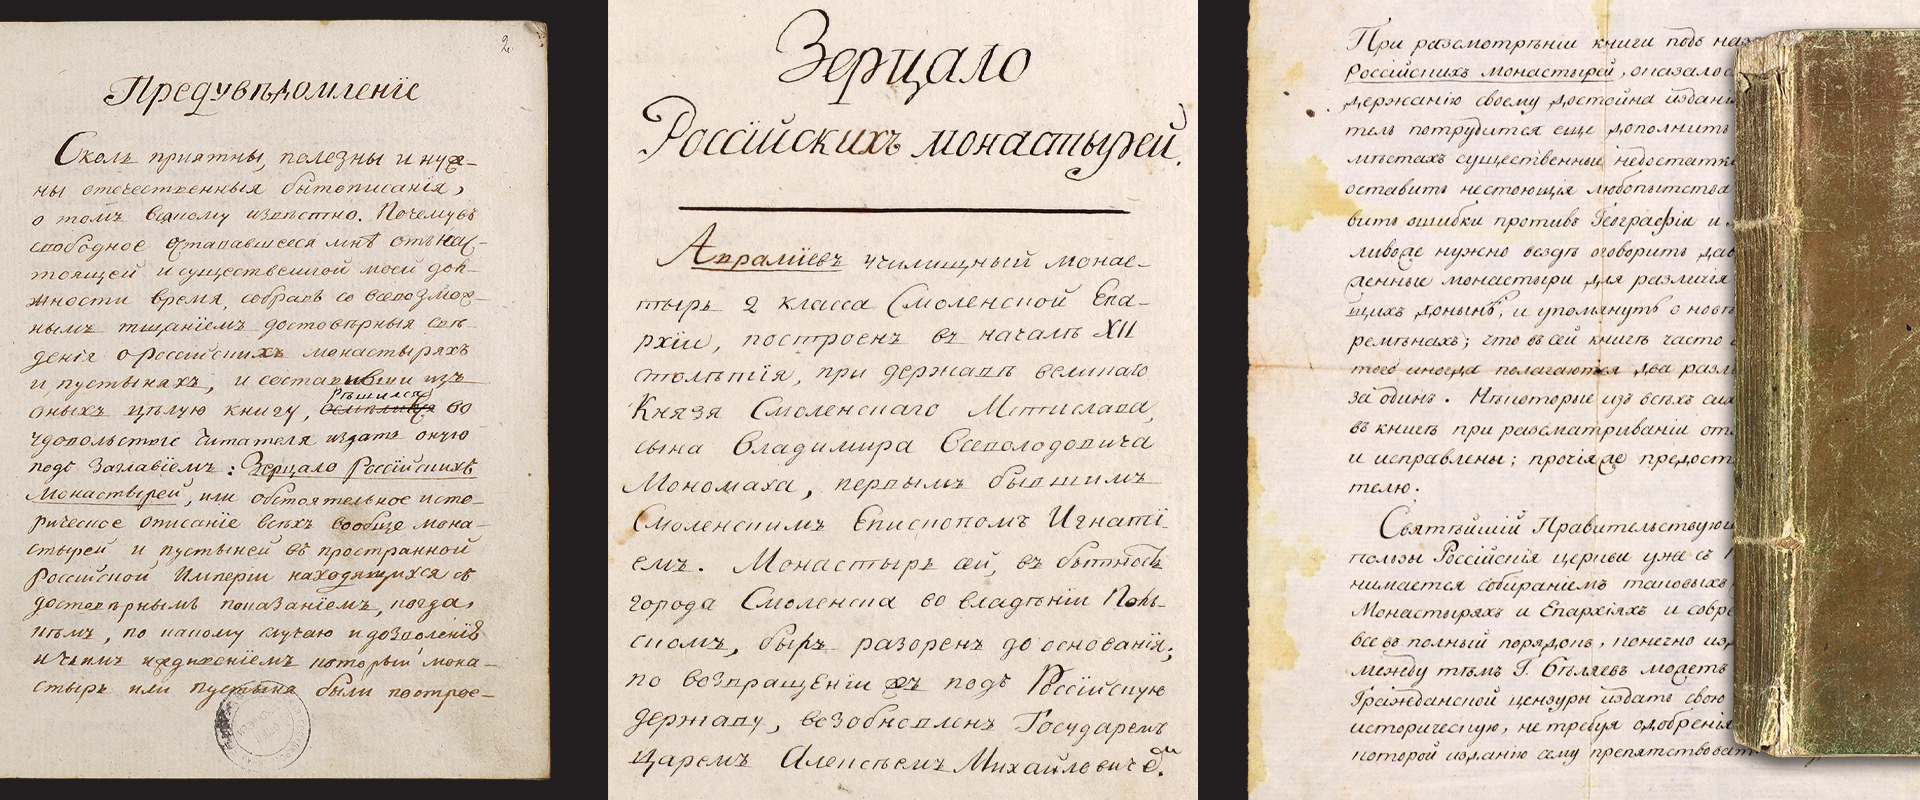 2.
Предувѣдомленіе
Сколь приятны, полезны и нуж-
ны отечественныя бытописанія,
о томъ всякому извѣстно. Почему въ
свободное остававшееся мнѣ отъ нас-
тоящей и существенной моей дол-
жности время, собравъ со всевозмож-
нымъ тщаніемъ достовѣрныя свѣ-
денія о россійскихъ монастыряхъ
и пустыняхъ, и составивши изъ
оныхъ цѣлую книгу, рѣшился во
удовольствіе читателя издать оную
подъ заглавіемъ: Зерцало россійскихъ
монастырей, или обстоятельное исто-
рическое описаніе всѣхъ вообще мона-
стырей и пустыней въ пространной
Россійской Имперіи находящихся съ
достовѣрнымъ показаніемъ, когда,
кѣмъ, по какому случаю и дозволенію
и чьимъ иждивеніемъ который мона-
стырь или пустыня были построе-
Зерцало
Россійскихъ монастырей.
Авраміевъ училищный монас-
тырь 2 класса Смоленской Епа-
рхіи, построенъ въ началѣ XII
столѣтія, при державѣ великаго
Князя Смоленскаго Мстислава,
сына Владимира Всеволодовича
Мономаха, первымъ бывшимъ
Смоленскимъ Епископомъ Игнаті-
емъ. Монастырь сей, въ бытность
города Смоленска во владѣніи Поль-
скомъ, былъ разоренъ до основанія;
по возвращеніи же подъ Россійскую
державу, возобновленъ Государемъ
Царемъ Алексѣемъ Михайловичемъ.
При разсмотрѣніи книги подъ наз
Россійскихъ монастырей, оказалос
держанію своему достойна издан
тель потрудится еще дополнить
мѣстахъ существенные недостатк
оставить нестоющія любопытства
вить ошибки противъ Географіи и
ливо же нужно вездѣ оговорить
женные монастыри для различія
щихъ донынѣ, и упомянуть о новы
ремѣнахъ; что въ сей книгѣ часто
того иногда полагаются два разл
за одинъ. Нѣкоторые изъ всѣхъ сих
въ книгѣ при разсматриваніи от
и исправлены; прочія же предост
телю.
Святѣйшій Правительствующ
пользы Россійскія церкви уже съ
нимается собираніемъ таковыхъ
Монастыряхъ и Епархіяхъ и совре
все въ полный порядокъ, конечно из
между тѣмъ Г. Бѣляевъ можетъ
Гражданской цензуры издать свою
историческую, не требуя одобренія
которой изданію сему препятствоват